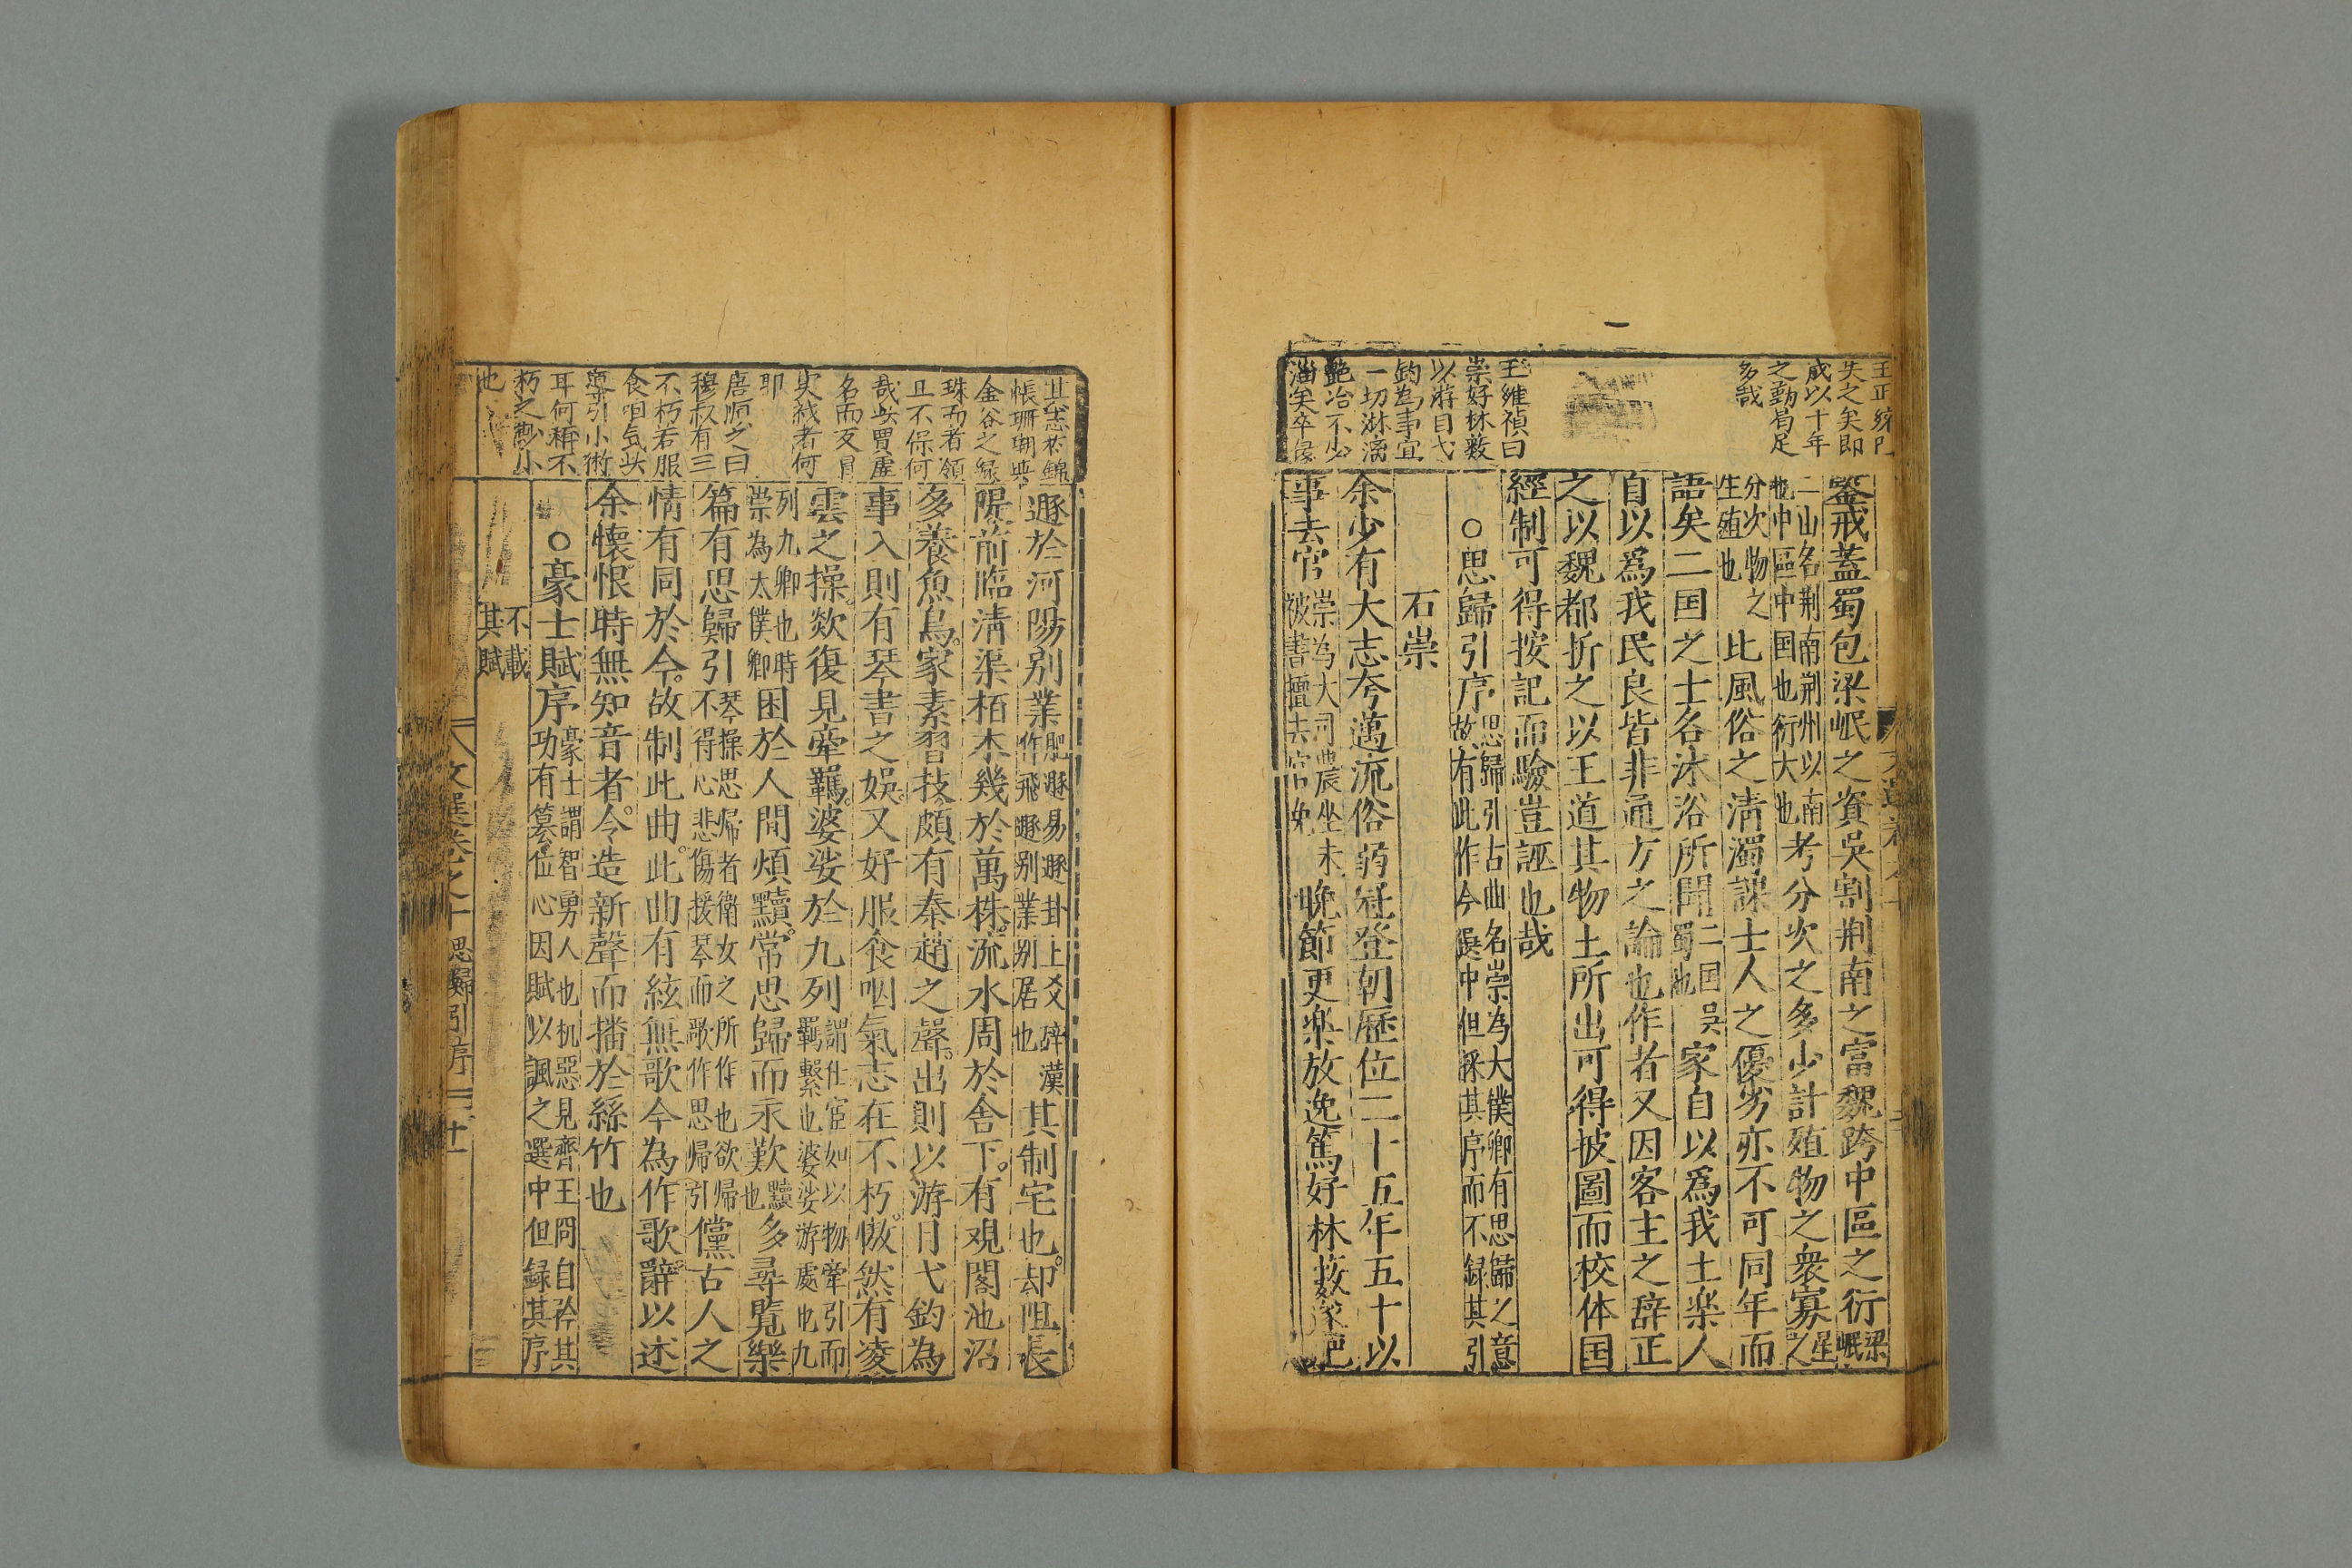 王正
失之矣即
成以十年
之勤局足
多哉
王維禎曰
崇好林藪
以游目弋
釣為事宜
一切淋漓
艷冶不少
淄矣卒
鑒戒蓋蜀包梁岷之資吳割荆南之富魏跨中區之衍梁岷
二山名荆南荆州以南
也中區中国也衍大也
考分次之多少計殖物之衆寡星之
分次物之
生殖也
比風俗之清濁課士人之優劣亦不可同年而
語矣二国之士各沐浴所聞二国吳蜀也家自以爲我土楽人
自以爲我民良皆非通方之論也作者又因客主之辞正
之以魏都折之以王道其物土所出可得披圖而校体国
經制可得按記而驗豈誣也哉
○思歸引序
思歸引古曲名崇為大僕卿有思歸之意
故有此作今選中但採其序而不録其引
石崇
余少有大志夸邁流俗弱冠登朝歷位二十五年五十以
事去官
崇為大司農坐未
被書擅去官免
晚節更楽放逸篤好林藪遂肥
帳珊瑚
金谷之緑
珠而者領
且不保何
名而反
史哉者何
耶
唐順之曰
穆叔有三
不朽若服
食咽気
導引小術
耳何稱不
朽之
也
遯於河陽别業
肥遯易遯卦上爻辞漢
作飛遯别業别居也
其制宅也却阻長
隄前臨清渠栢木幾於萬株流水周於舍下有观閣池沼
多養魚鳥家素習技頗有秦趙之聲出則以游目弋釣為
事入則有琴書之娛又好服食咽氣志在不朽慠然有凌
雲之操欻復見牽羈婆娑於九列
謂仕宦如以物牽引而
羈繫也婆娑游處也九
列九卿也時
崇為太僕卿
困於人間煩黷常思歸而永歎黷也多尋覽樂
篇有思歸引
琴操思帰者衛女之所作也欲帰
不得心悲傷援琴而歌作思帰引
儻古人之
情有同於今故制此曲此曲有絃無歌今為作歌辭以述
余懷恨時無知音者令造新聲而播於絲竹也
○豪士賦序
豪士謂智勇人也机惡見齊王冏自矜其
功有篡位心因賦以諷之選中但録其序
不載
其賦
文選卷之十 思歸引序